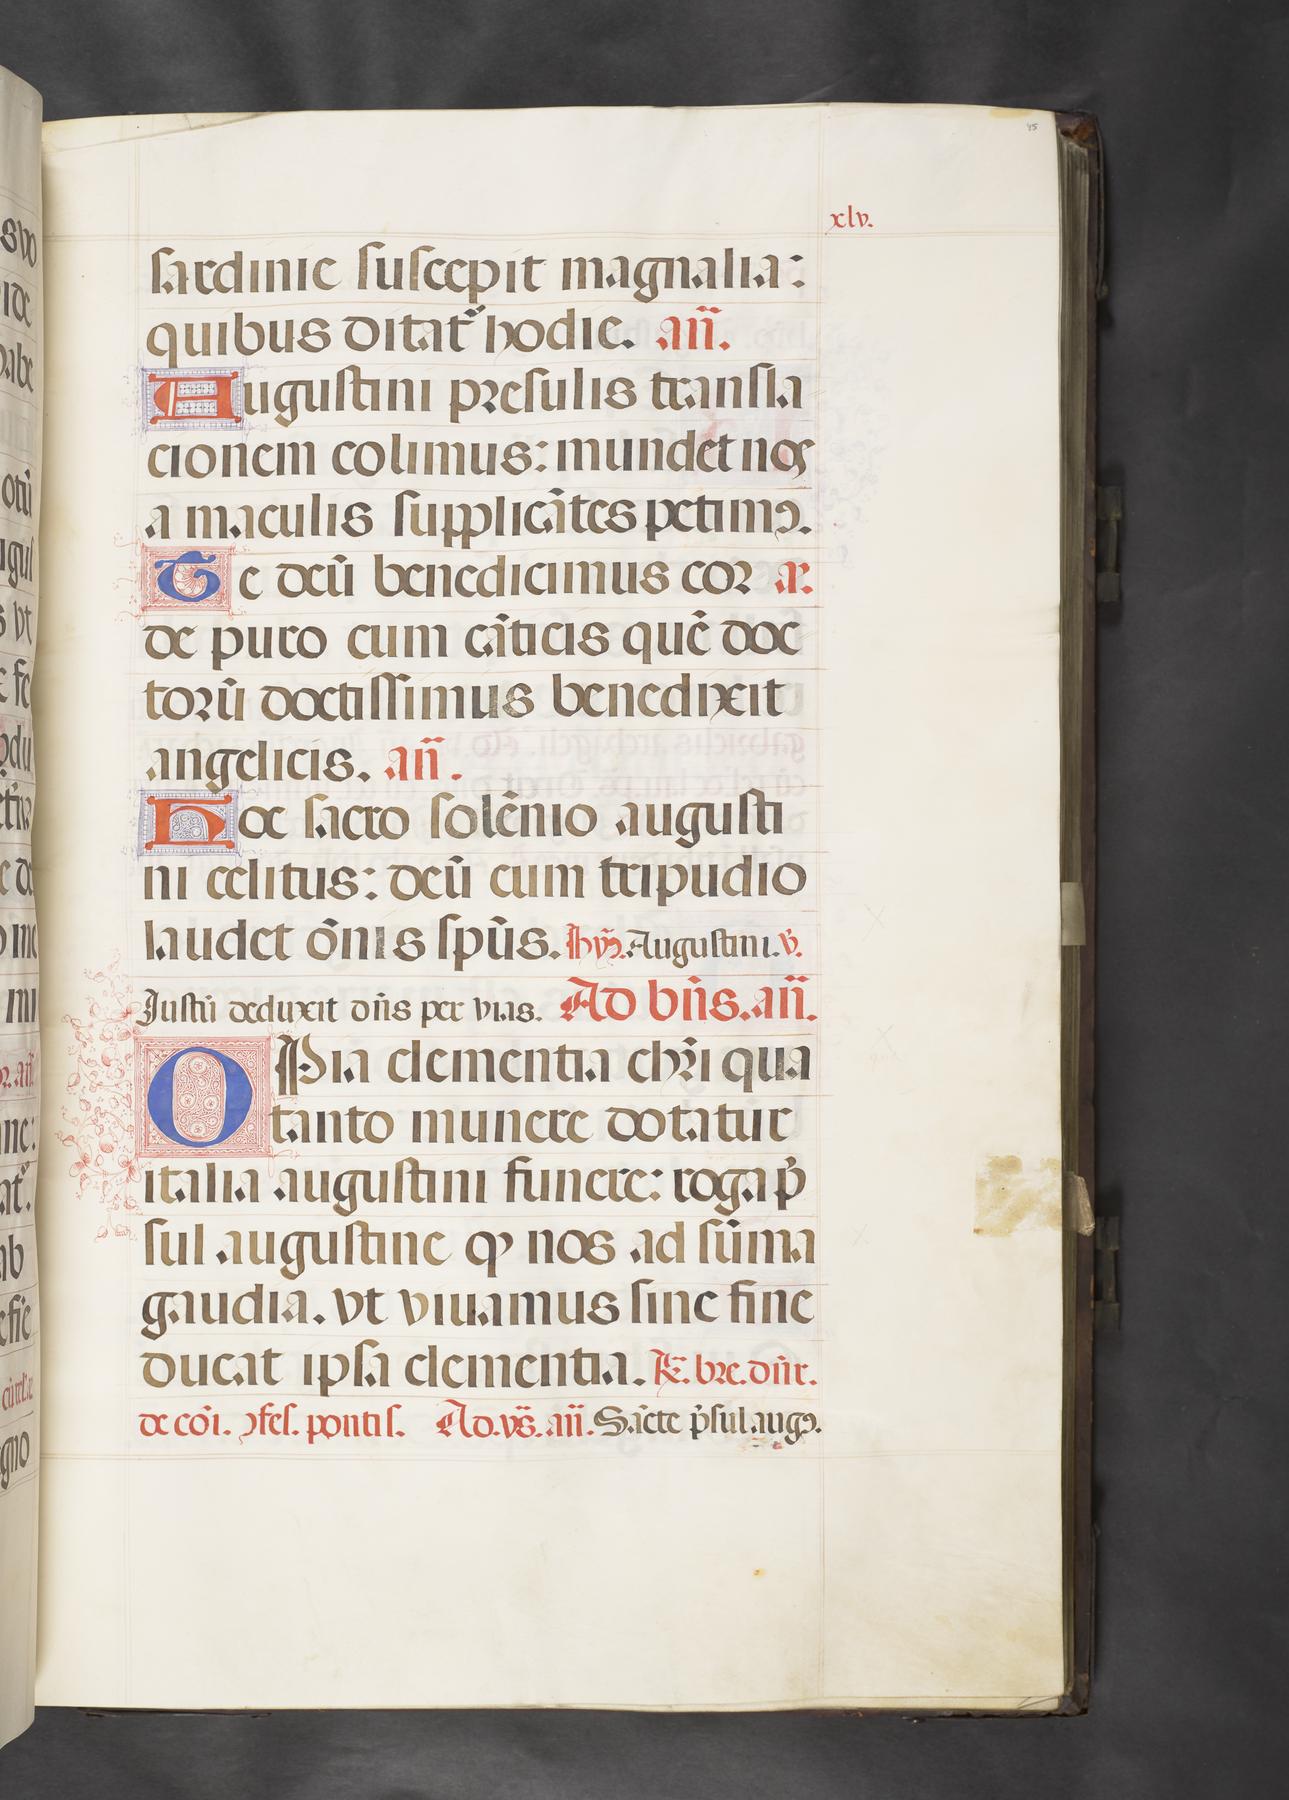 45
xlv.
sardinie suscepit magnalia:
quibus ditat᷑ hodie. an̄.
Augustini presulis transla
cionem colimus: mundet nos
a maculis supplicātes petimꝯ.
Te deū benedicimus cor ar.
de puro cum cāticis quē doc
torū doctissimus benedixit
angelicis. an̄.
Hoc sacro solēnio augusti
ni celitus: deū cum tripudio
laudet ōnis sp̄us. hyꝯ. Augustini. v̄.
Justū deduxit dn̄s per vias. Ad bn̄s. an̄.
O Pia clementia chr̄i qua
tanto munere dotatur
italia augustini funere: roga p̄
sul augustine qꝫ nos ad sūma
gaudia. vt viuamus sine fine
ducat ipsa clementia. K. bre. dn̄r.
de cōi. ꝯfes. pontis. Ad. vs̄. an̄. Sācte p̄sul augꝯ.